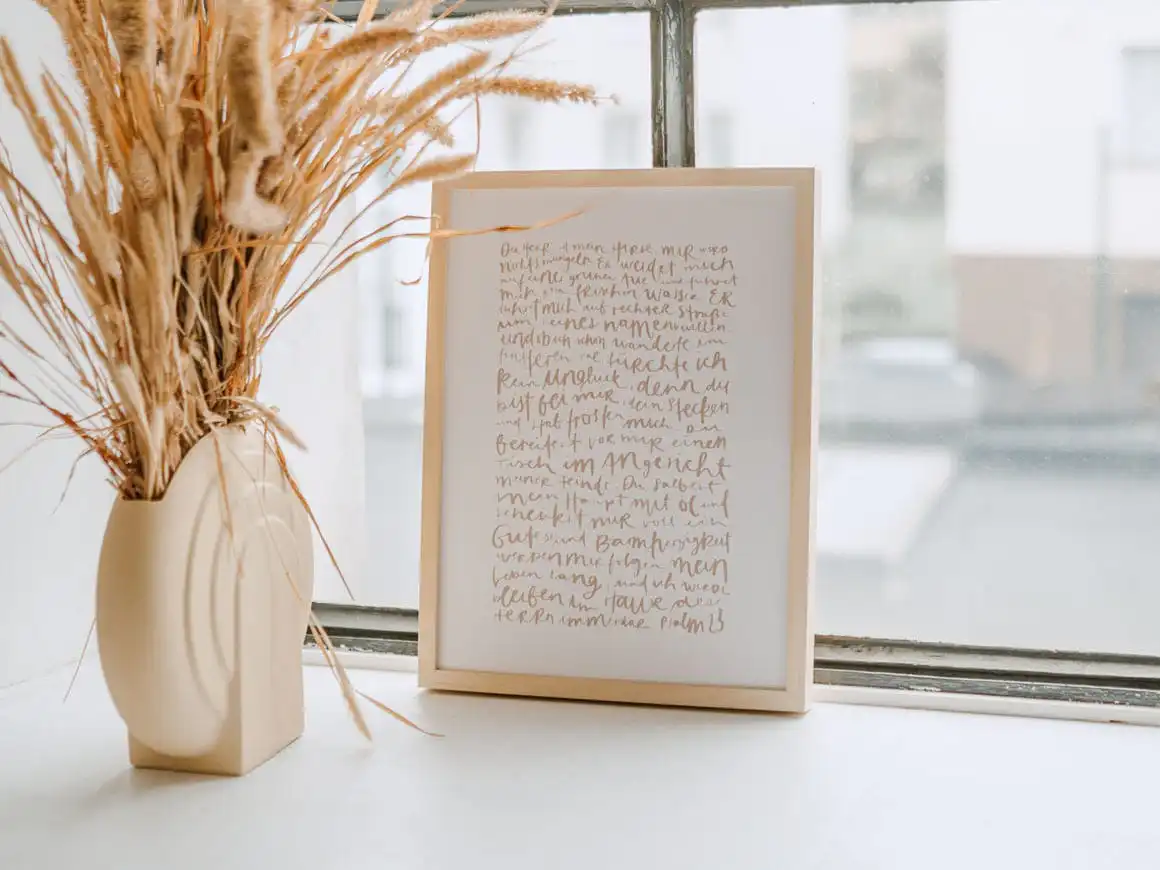 Der Herr ist mein Hirte mir wird
nichts mangeln. Er weidet mich
auf einer grünen Aue und führet
mich zum frischen Wasser Er
führet mich auf rechter Straße
um seines namens willen.
und ob ich schon wanderte im
finsteren Tal fürchte ich
kein Unglück, denn du
bist bei mir, dein Stecken
und Stab trösten mich. Du
bereitest vor mir einen
Tisch im Angesicht
meiner Feinde. Du salbest
mein Haupt mit öl und
schenkest mir voll ein
Gutes und Barmherzigkeit
werden mir folgen mein
Leben lang, und ich werde
bleiben im Hause des
Herrn immerdar Psalm 23